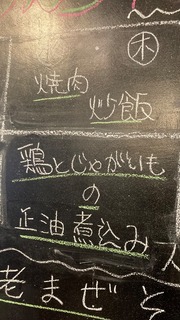 木
焼肉
炒飯
鶏とじゃがいも
の
正油煮込み
老まぜそ